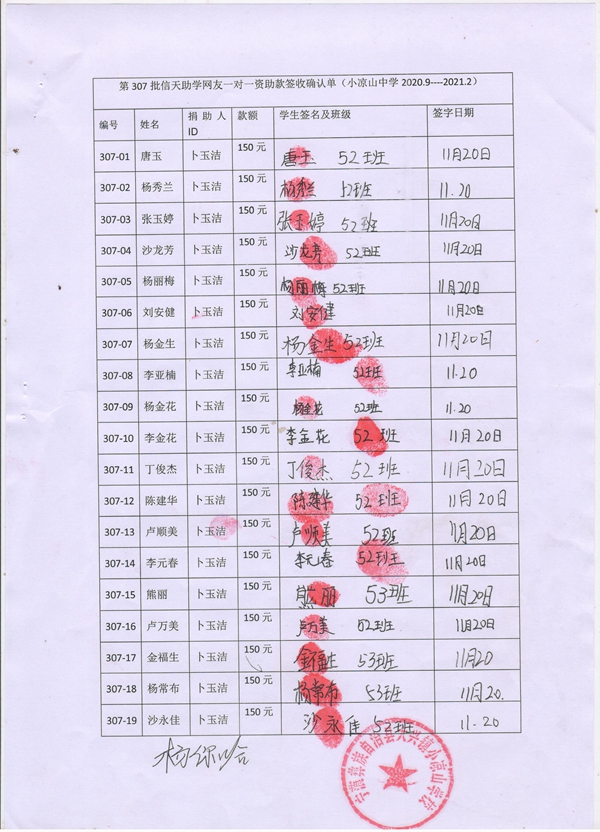 第 307 批信天助学网友一对一资助款签收确认单（小凉山中学 2020.9----2021.2）
编号 姓名 捐助人ID 款额 学生签名及班级 签字日期
307-01 唐玉 卜玉洁 150 元 唐玉 52班 11月20日
307-02 杨秀兰 卜玉洁 150 元 杨秀兰 52班 11.20
307-03 张玉婷 卜玉洁 150 元 张玉婷 52班 11月20日
307-04 沙龙芳 卜玉洁 150 元 沙龙芳 52班 11月20日
307-05 杨丽梅 卜玉洁 150 元 杨丽梅 52班 11月20日
307-06 刘安健 卜玉洁 150 元 刘安健 11月20日
307-07 杨金生 卜玉洁 150 元 杨金生 52班 11月20日
307-08 李亚楠 卜玉洁 150 元 李亚楠 52班 11.20
307-09 杨金花 卜玉洁 150 元 杨金花 52班 11.20
307-10 李金花 卜玉洁 150 元 李金花 52班 11月20日
307-11 丁俊杰 卜玉洁 150 元 丁俊杰 52班 11月20日
307-12 陈建华 卜玉洁 150 元 陈建华 52班 11月20日
307-13 卢顺美 卜玉洁 150 元 卢顺美 52班 11月20日
307-14 李元春 卜玉洁 150 元 李元春 52班 11月20日
307-15 熊丽 卜玉洁 150 元 熊丽 53班 11月20日
307-16 卢万美 卜玉洁 150 元 卢万美 52班 11月20日
307-17 金福生 卜玉洁 150 元 金福生 53班 11月20
307-18 杨常布 卜玉洁 150 元 杨常布 53班 11月20.
307-19 沙永佳 卜玉洁 150 元 沙永佳 52班 11.20
宁蒗彝族自治县大兴镇小凉山学校